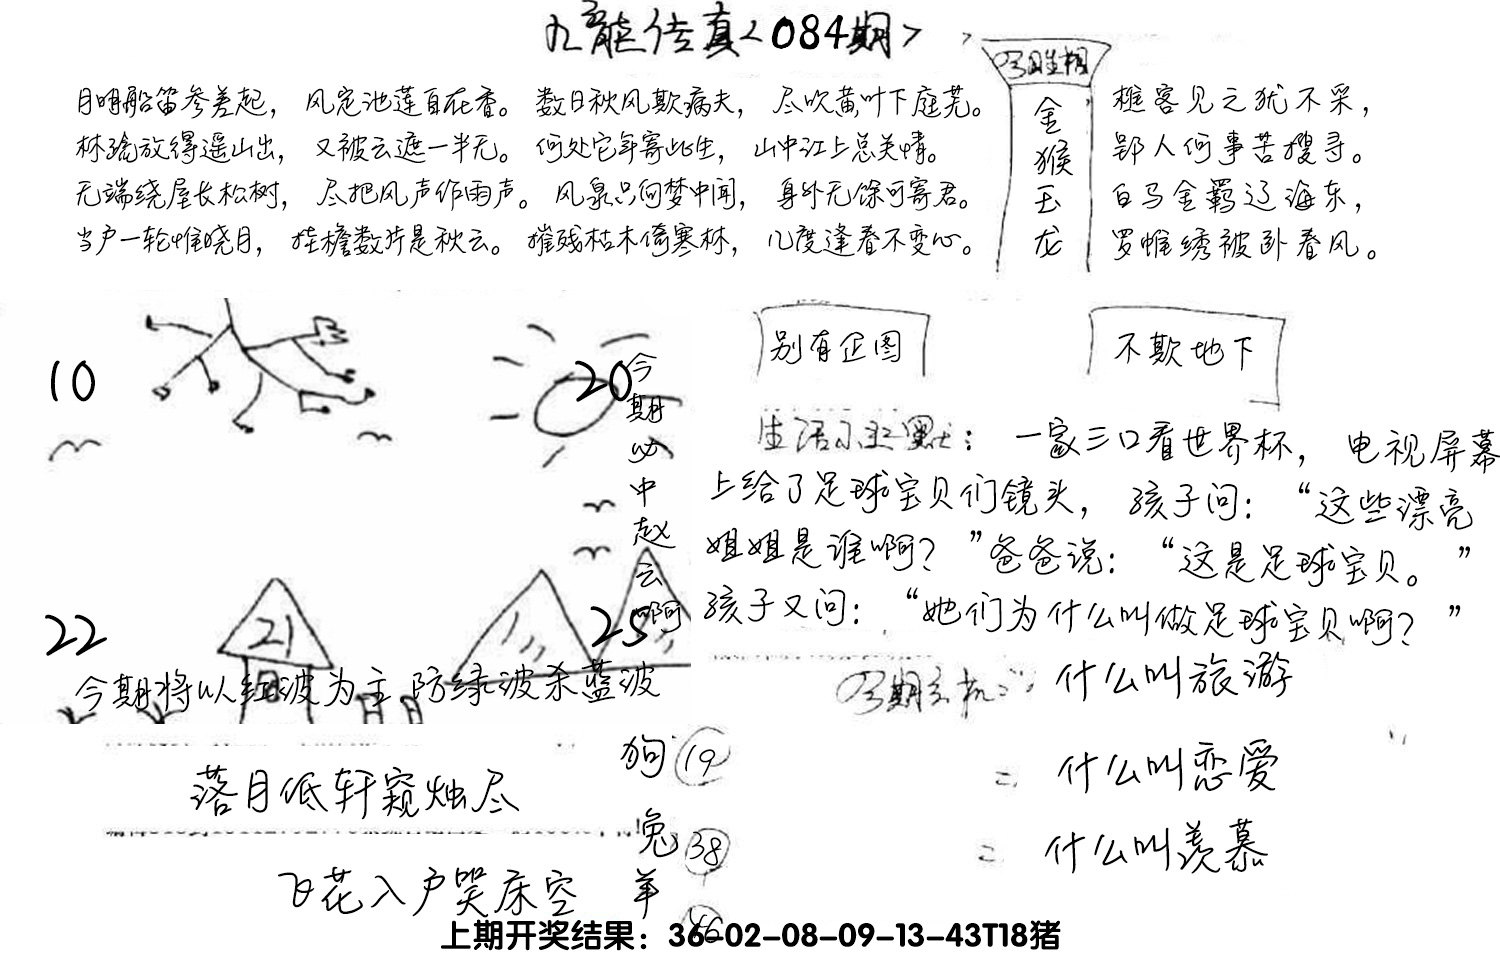 九龙传真<084期>
月明船笛参差起，风定池莲自在香。数日秋风欺病夫，尽吹黄叶下庭芜。
林疏放得遥山出，又被云遮一半无。何处它年寄此生，山中江上总关情。
无端绕屋长松树，尽把风声作雨声。风泉只向梦中闻，身外无馀可寄君。
当户一轮惟晓月，挂檐数片是秋云。摧残枯木倚寒林，几度逢春不变心。
金
猴
玉
龙
樵客见之犹不采，
郢人何事苦搜寻。
白马金羁辽海东，
罗帷绣被卧春风。
10
20
22
21
25
今期必中赵云啊
今期将以红波为主防绿波杀蓝波
别有企图
不欺地下
生活小幽默：一家三口看世界杯，电视屏幕
上给了足球宝贝们镜头，孩子问：“这些漂亮
姐姐是谁啊？”爸爸说：“这是足球宝贝。”
孩子又问：“她们为什么叫做足球宝贝啊？”
什么叫旅游
二 什么叫恋爱
二 什么叫羡慕
落月低轩窥烛尽
飞花入户笑床空
狗 19
兔 38
羊 46
上期开奖结果：36-02-08-09-13-43T18猪